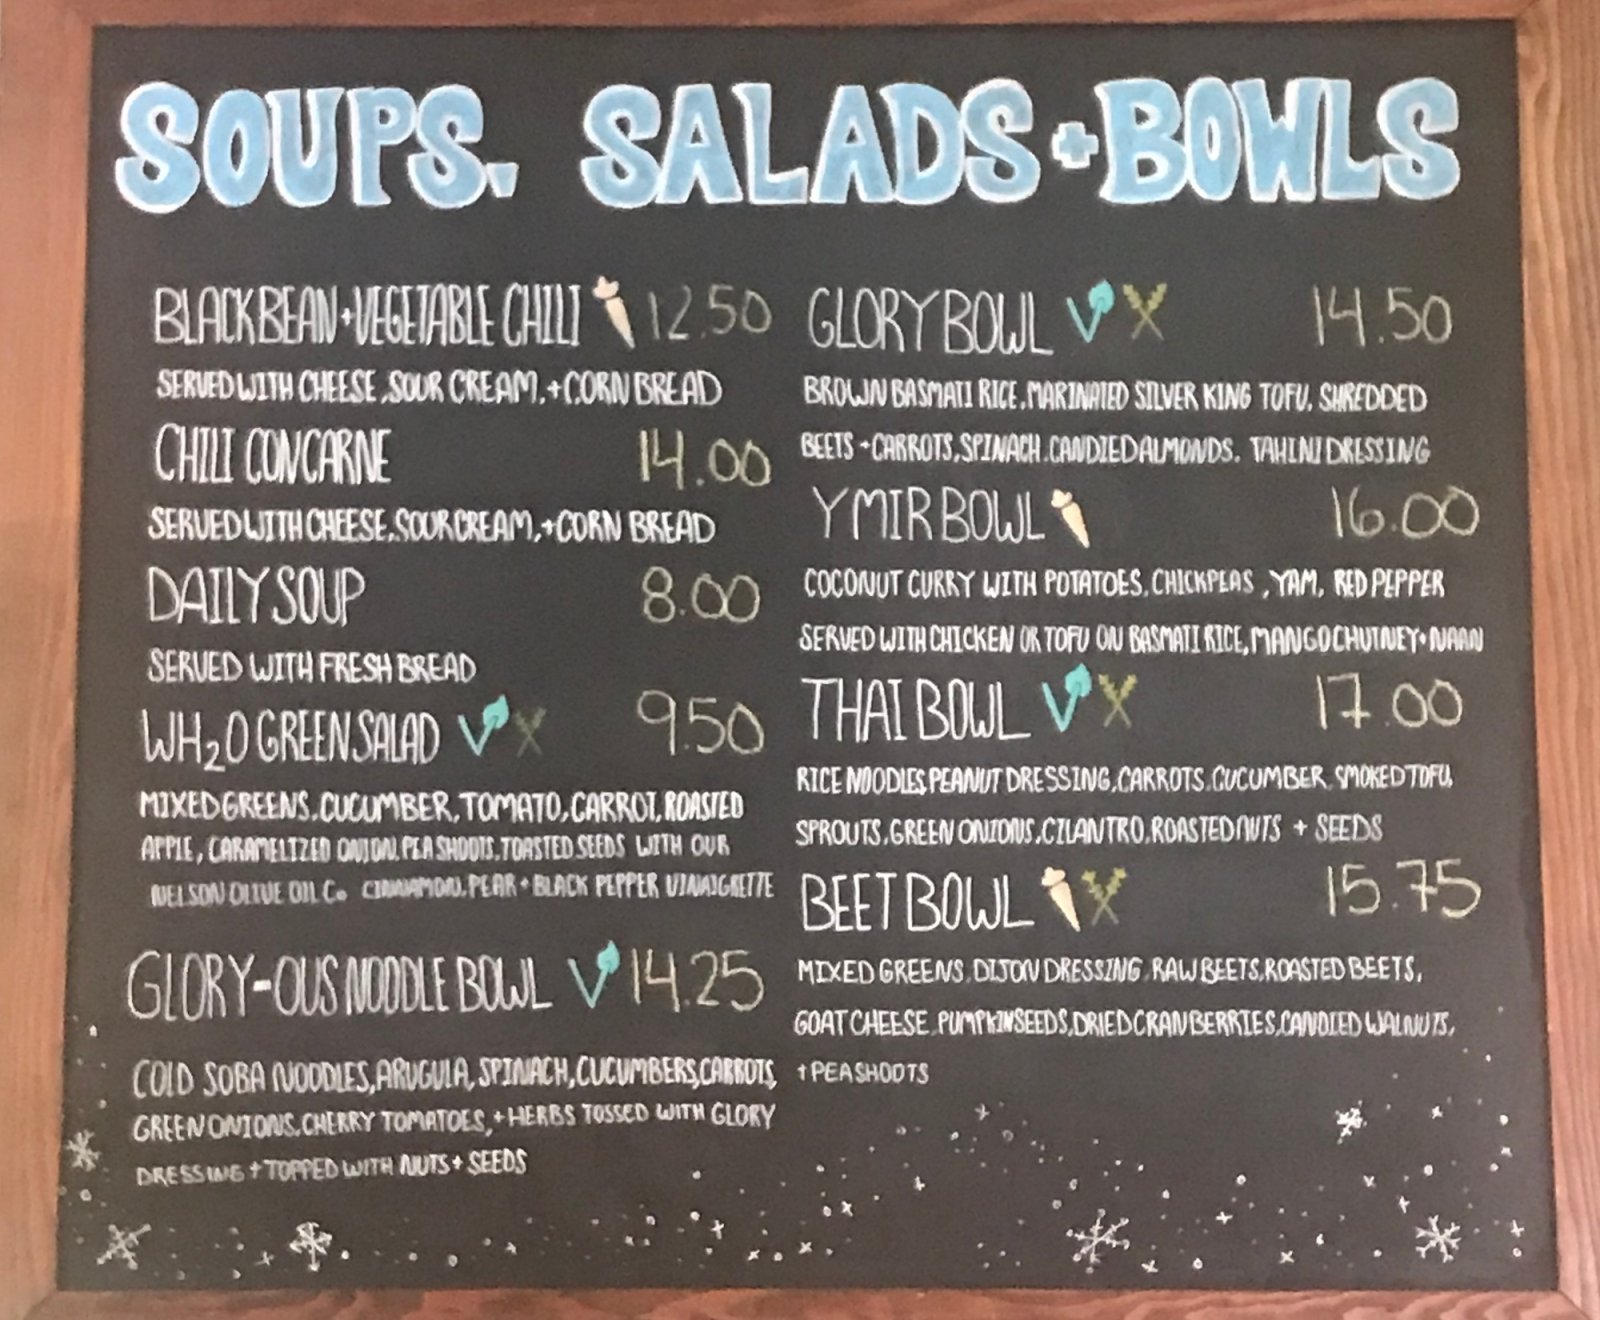 SOUPS. SALADS + BOWLS
BLACK BEAN + VEGETABLE CHILI 12.50
SERVED WITH CHEESE, SOUR CREAM, + CORN BREAD
CHILI CON CARNE 14.00
SERVED WITH CHEESE, SOUR CREAM, + CORN BREAD
DAILY SOUP 8.00
SERVED WITH FRESH BREAD
WH2O GREEN SALAD V 9.50
MIXED GREENS, CUCUMBER, TOMATO, CARROT, ROASTED
APPLE, CARAMELIZED ONION, PEA SHOOTS, TOASTED SEEDS WITH OUR
NELSON OLIVE OIL Co CINNAMON, PEAR + BLACK PEPPER VINAIGRETTE
GLORY-OUS NOODLE BOWL V 14.25
COLD SOBA NOODLES, ARUGULA, SPINACH, CUCUMBERS, CARROTS,
GREEN ONIONS, CHERRY TOMATOES, + HERBS TOSSED WITH GLORY
DRESSING + TOPPED WITH NUTS + SEEDS
GLORY BOWL V 14.50
BROWN BASMATI RICE, MARINATED SILVER KING TOFU, SHREDDED
BEETS + CARROTS, SPINACH, CANDIED ALMONDS, TAHINI DRESSING
YMIR BOWL 16.00
COCONUT CURRY WITH POTATOES, CHICKPEAS, YAM, RED PEPPER
SERVED WITH CHICKEN OR TOFU ON BASMATI RICE, MANGO CHUTNEY + NAAN
THAI BOWL V 17.00
RICE NOODLES, PEANUT DRESSING, CARROTS, CUCUMBER, SMOKED TOFU,
SPROUTS, GREEN ONIONS, CILANTRO, ROASTED NUTS + SEEDS
BEET BOWL 15.75
MIXED GREENS, DIJON DRESSING, RAW BEETS, ROASTED BEETS,
GOAT CHEESE, PUMPKIN SEEDS, DRIED CRANBERRIES, CANDIED WALNUTS,
+ PEA SHOOTS